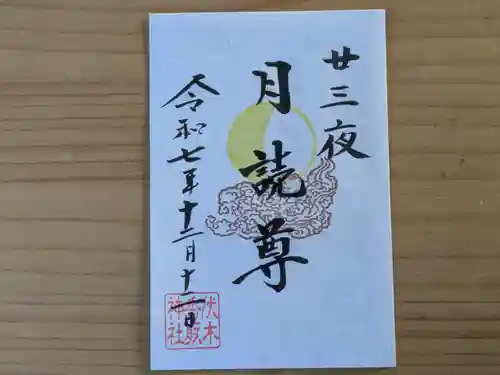 廿三夜
月読尊
令和七年十二月十二日
伏木
香取
神社